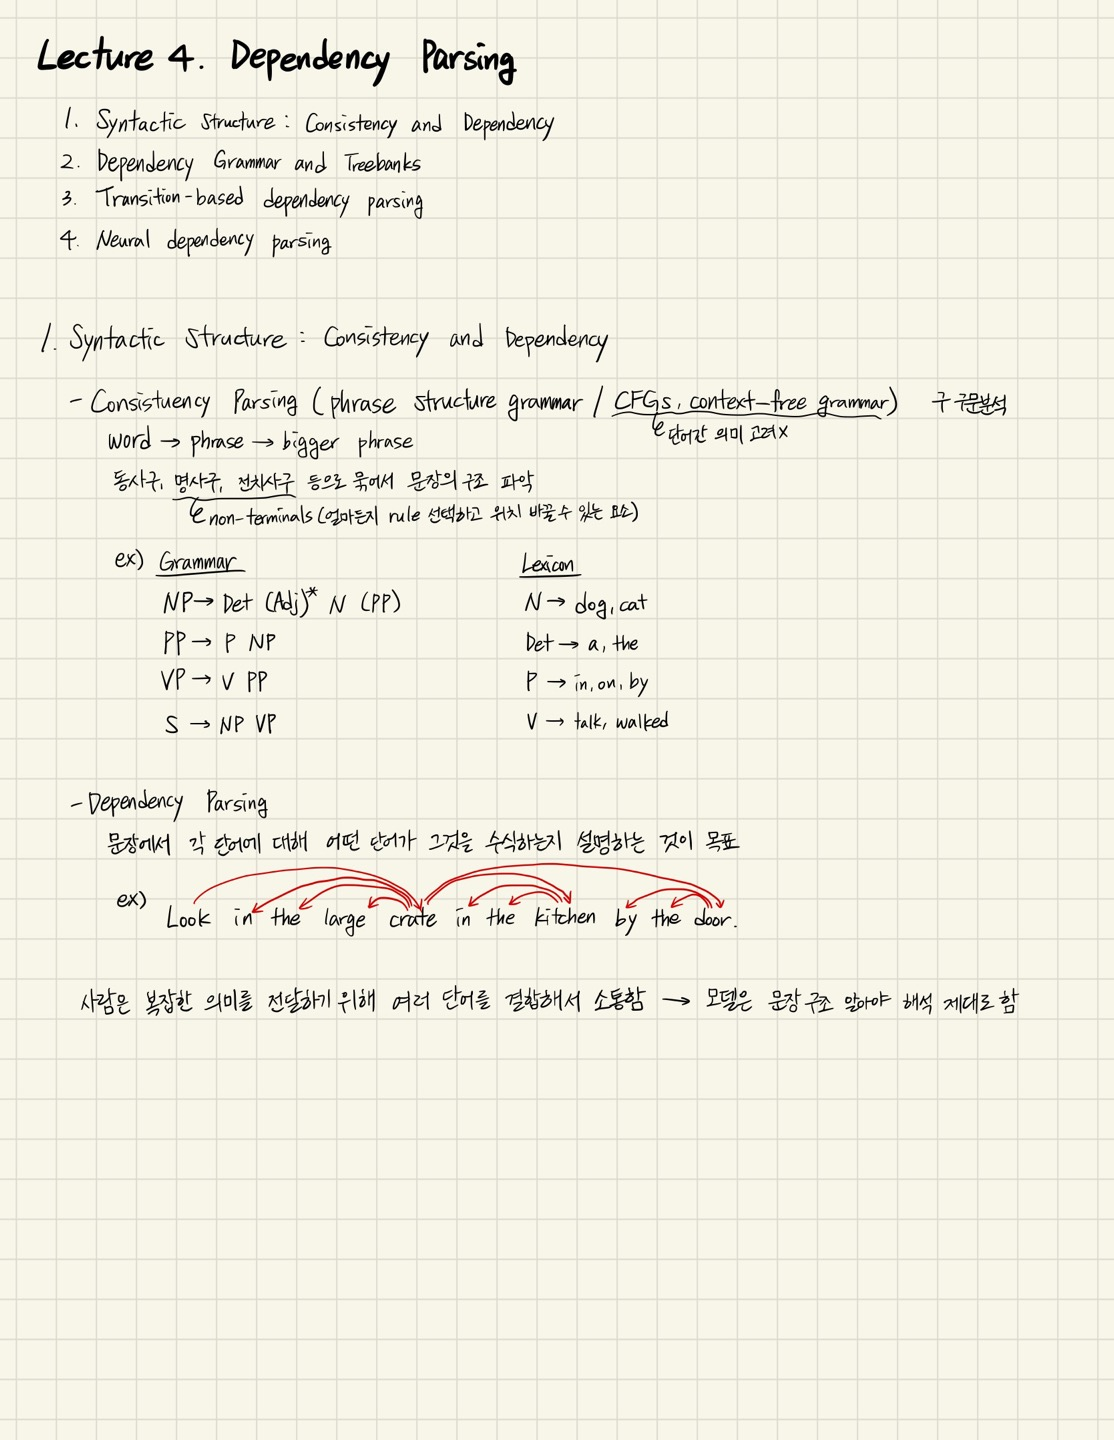 Lecture 4. Dependency Parsing
1. Syntactic Structure : Consistency and Dependency
2. Dependency Grammar and Treebanks
3. Transition-based dependency parsing
4. Neural dependency parsing
1. Syntactic Structure : Consistency and Dependency
- Consistuency Parsing (phrase structure grammar / CFGs, context-free grammar) 구 구문분석
단어간 의미 고려X
word → phrase → bigger phrase
동사구, 명사구, 전치사구 등으로 묶어서 문장의 구조 파악
non-terminals (얼마든지 rule 선택하고 위치 바꿀 수 있는 요소)
ex) Grammar Lexicon
NP → Det (Adj)* N (PP) N → dog, cat
PP → P NP Det → a, the
VP → V PP P → in, on, by
S → NP VP V → talk, walked
- Dependency Parsing
문장에서 각 단어에 대해 어떤 단어가 그것을 수식하는지 설명하는 것이 목표
ex) Look in the large crate in the kitchen by the door.
사람은 복잡한 의미를 전달하기 위해 여러 단어를 결합해서 소통함 → 모델은 문장 구조 알아야 해석 제대로 함